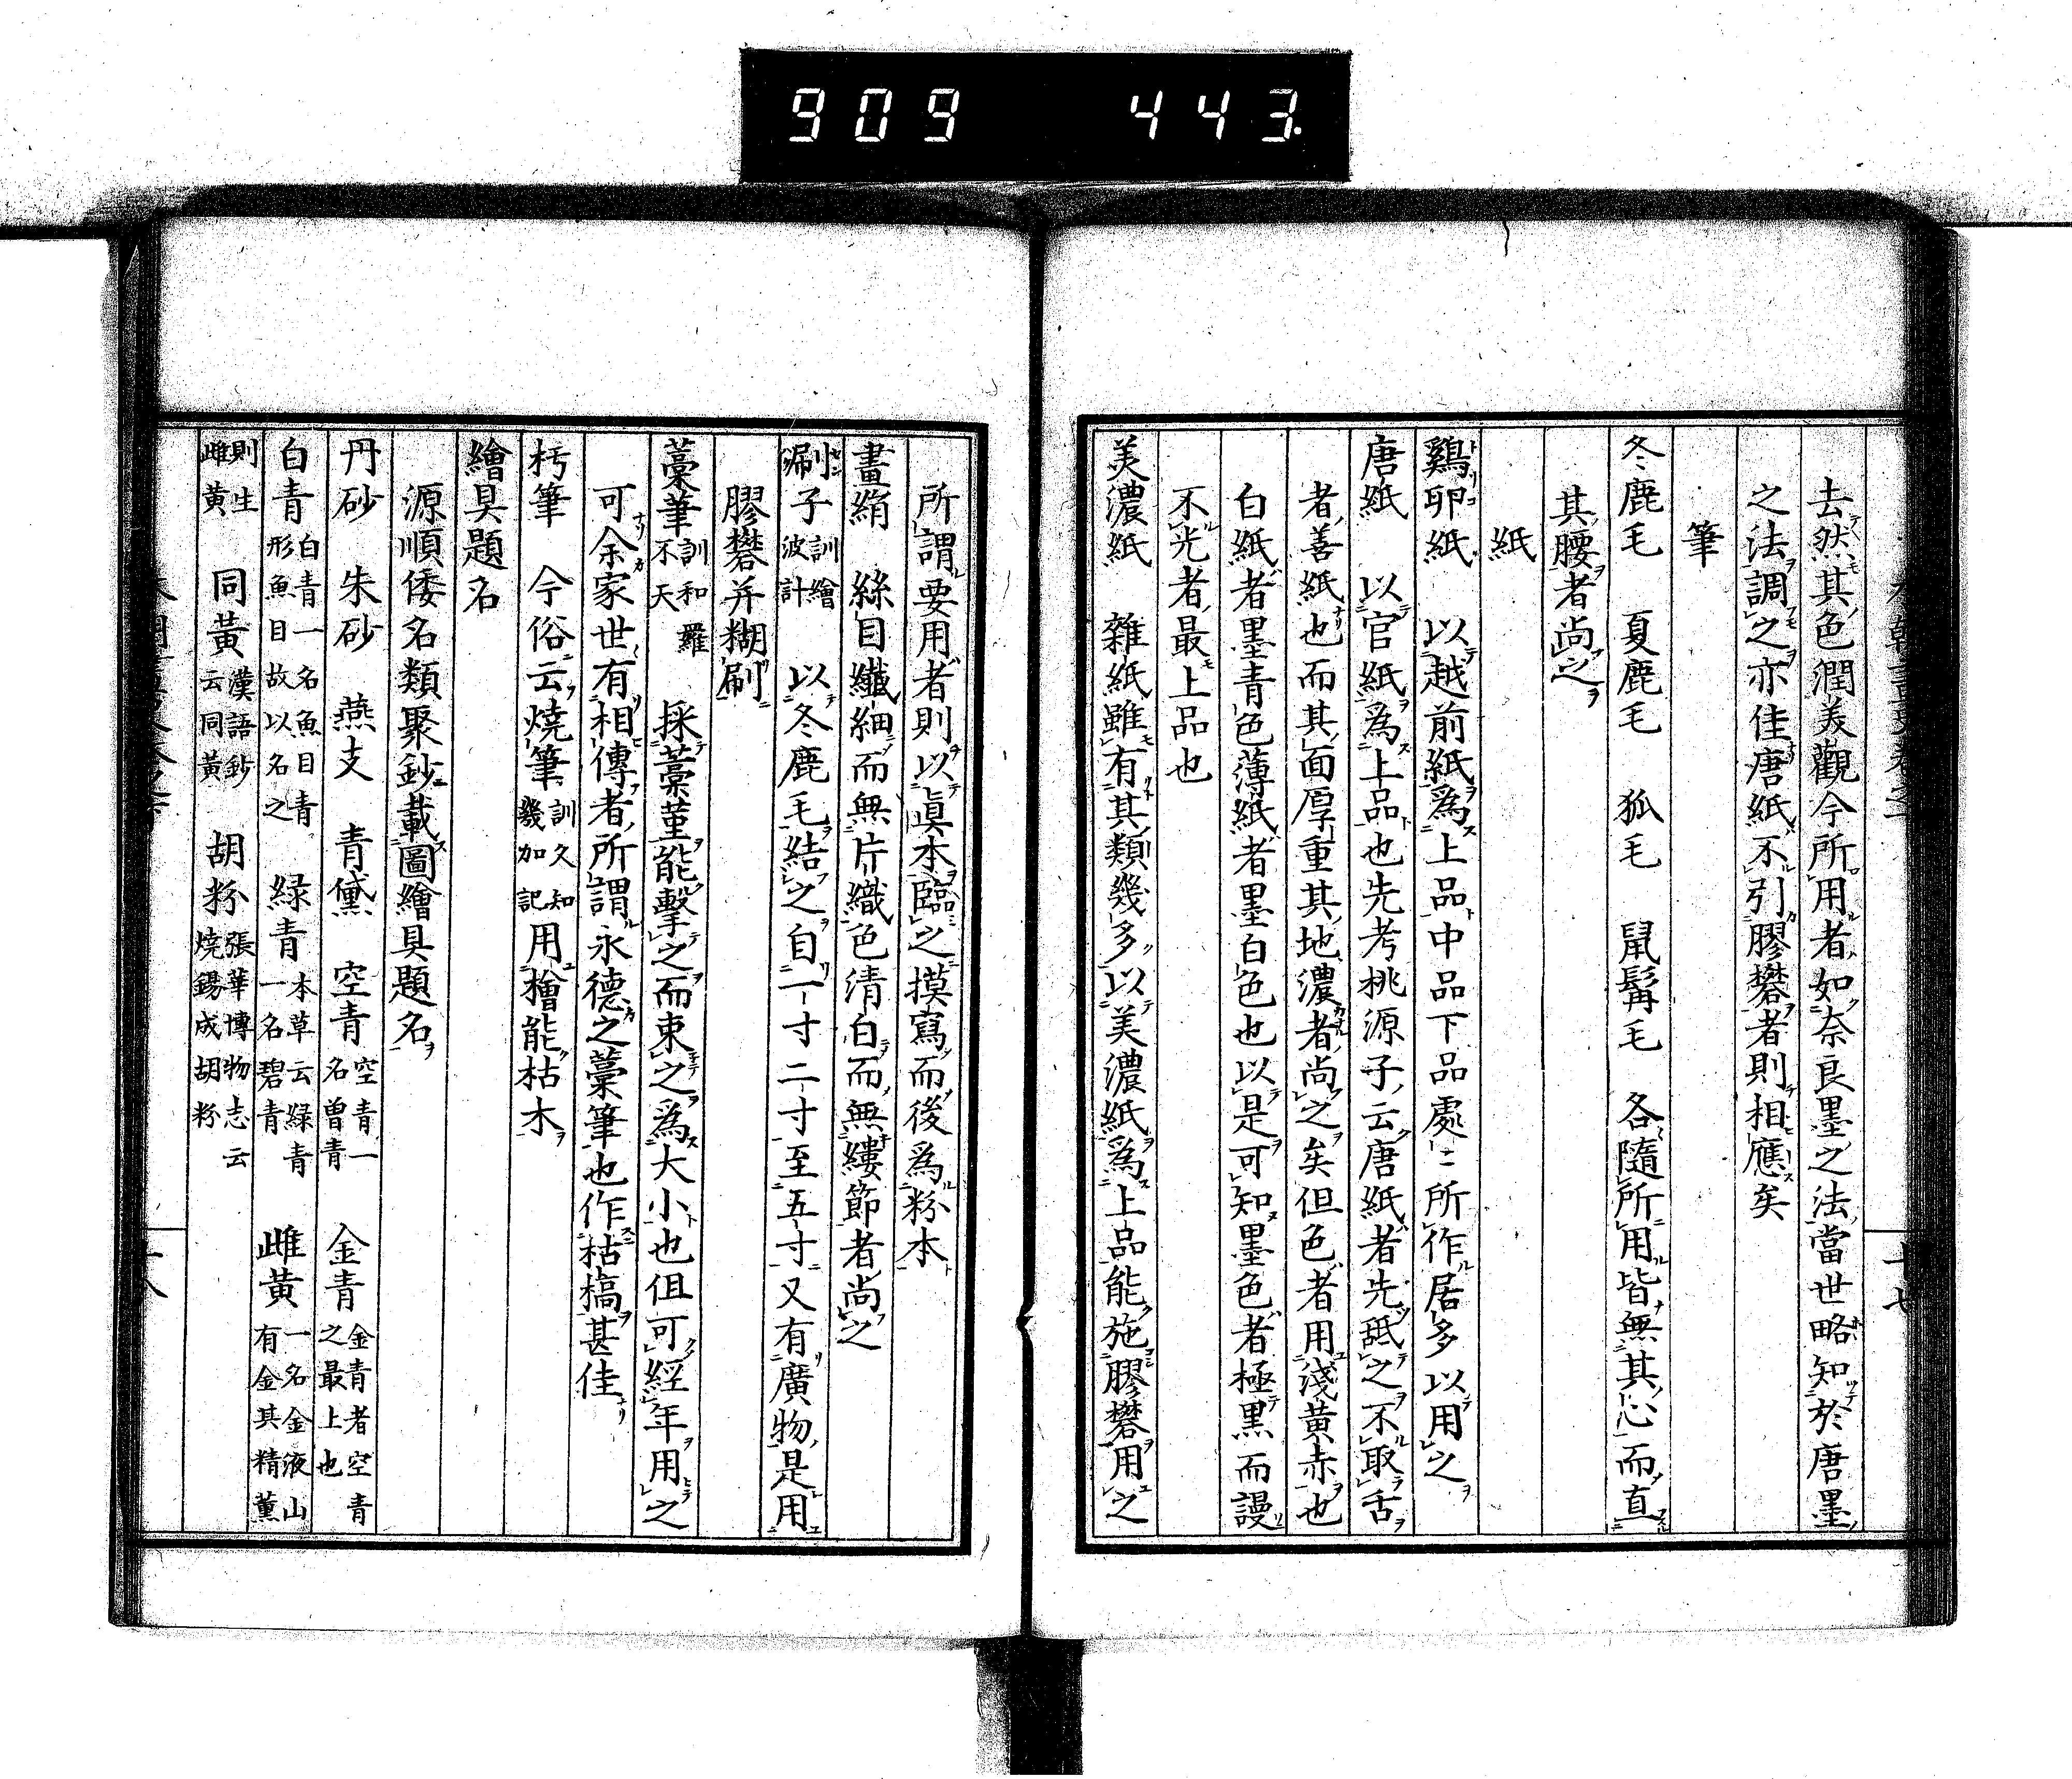 909 443.
去然其色潤美觀今所用者如奈良墨之法當世略知於唐墨
之法調之亦佳唐紙不引膠礬者則相應矣
筆
冬鹿毛 夏鹿毛 狐毛 鼠髯毛 各隨所用皆無其心而直
其腰者尚之
紙
鷄卵紙 以越前紙爲上品中品下品處〻所作居多以用之
唐紙 以官紙爲上品也先考桃源子云唐紙者先舐之不取舌
者善紙也而其面厚重其地濃者尚之矣但色者用淺黄赤也
白紙者墨青色薄紙者墨白色也以是可知墨色者極黒而謾
不光者最上品也
美濃紙 雜紙雖有其類幾多以美濃紙爲上品能施膠礬用之
所謂要用者則以眞本臨之摸寫而後爲粉本
畫絹 絲目纖細而無片織色清白而無縷節者尚之
刷子訓繪波計 以冬鹿毛結之自一寸二寸至五寸又有廣物是用
膠礬并糊刷
藁筆訓和羅不天 採藁菫能擊之而束之爲大小也但可經年用之
可余家世有相傳者所謂永德之藁筆也作枯槁甚佳
朽筆 今俗云燒筆訓久知幾加記用檜能枯木
繪具題名
源順倭名類聚鈔載圖繪具題名
丹砂 朱砂 燕支 青黛 空青空青一名曽青 金青金青者空青之最上也
白青白青一名魚目青形魚目故以名之 緑青本草云緑青一名碧青 雌黄一名金液山有金其精薰
則生雌黄 同黄漢語鈔云同黄 胡粉張華博物志云燒錫成胡粉